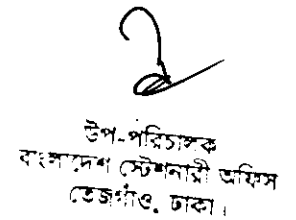 উপ-পরিচালক
বাংলাদেশ স্টেশনারী অফিস
তেজগাঁও, ঢাকা।